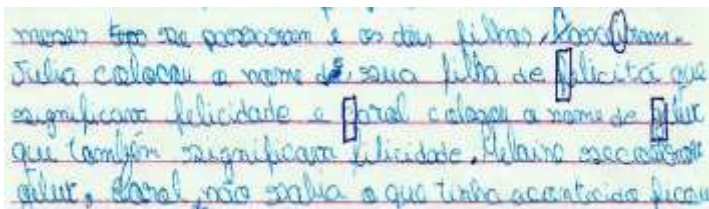 meses se passaram e os dois filhos,
Julia colocou o nome de sua filha de felicità que
significava felicidade e Carol colocou o nome de
que também significava felicidade. Melaine
gelut, Carol não sabia o que tinha acontecido ficou